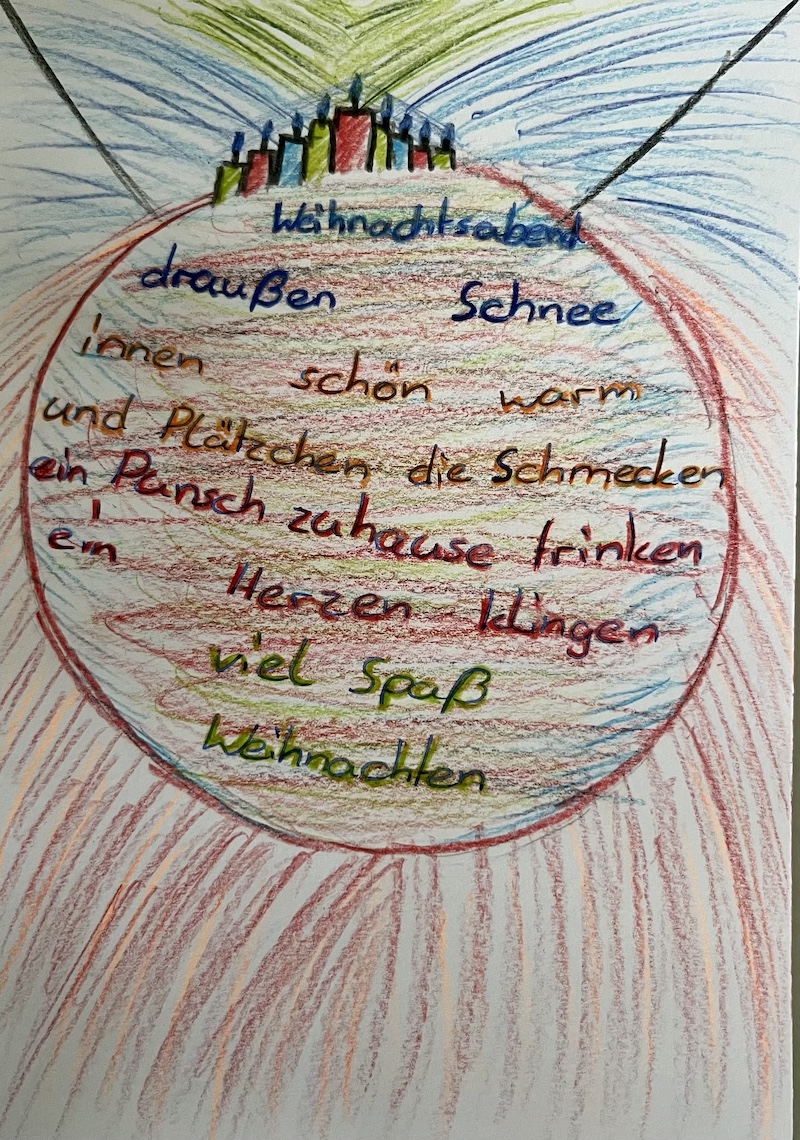 Weihnachtsabend
draußen Schnee
innen schön warm
und Plätzchen die Schmecken
ein Punsch zuhause trinken
Herzen klingen
viel Spaß
Weihnachten